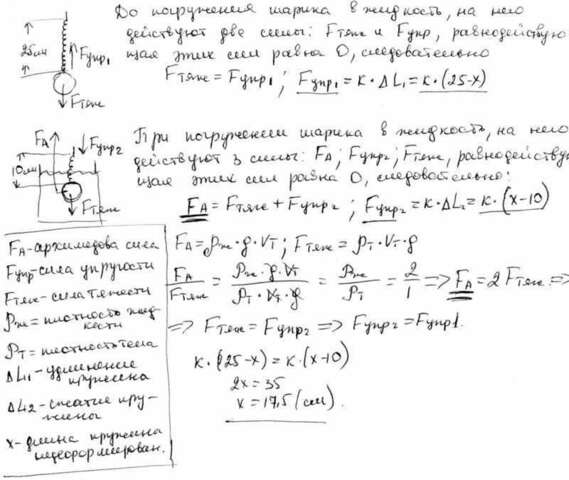 До погружения шарика в жидкость, на него
действуют две силы: Fтяж и Fупр, равнодействую
щая этих сил равна 0, следовательно
Fтяж = Fупр1; Fупр1 = K·ΔL1 = K·(25-x)
25см
Fупр1
Fтяж
При погружении шарика в жидкость, на него
действуют 3 силы: FA; Fупр2; Fтяж, равнодейству
щая этих сил равна 0, следовательно:
FA = Fтяж + Fупр2; Fупр2 = K·ΔL2 = K·(x-10)
FA
Fупр2
10см
Fтяж
FA = ρж·g·VT; Fтяж = ρT·VT·g
FA/Fтяж = ρж·g·VT/ρT·VT·g = ρж/ρT = 2/1 => FA = 2Fтяж =>
=> Fтяж = Fупр2 => Fупр2 = Fупр1.
K·(25-x) = K·(x-10)
2x = 35
x = 17,5 (см).
FA - архимедова сила
Fупр - сила упругости
Fтяж - сила тяжести
ρж = плотность жид-
кости
ρT = плотность тела
ΔL1 - удлинение
пружины
ΔL2 - сжатие пру-
жины
x - длина пружины